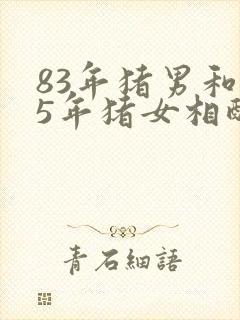 83年猪男和
5年猪女相配
青石細語